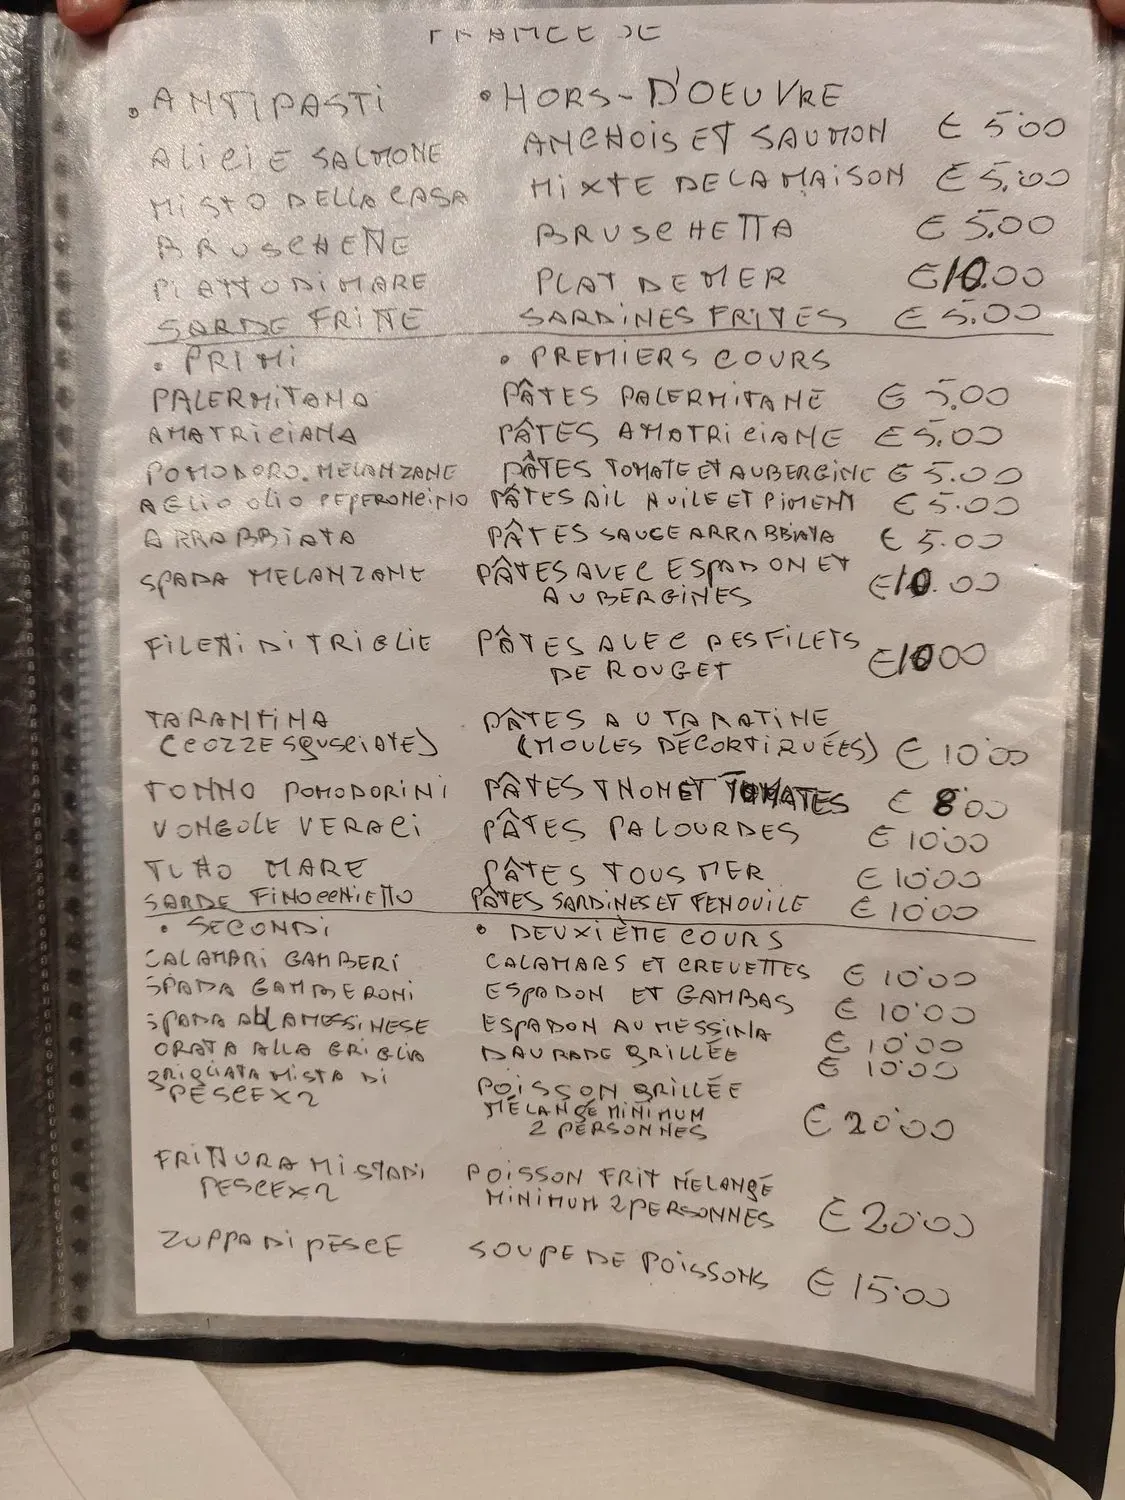 FRANCESE
• ANTIPASTI • HORS-D'OEUVRE
ALICI E SALMONE ANCHOIS ET SAUMON € 5'00
MISTO DELLA CASA MIXTE DE LA MAISON € 5,00
BRUSCHETTE BRUSCHETTA € 5.00
PIATTO DI MARE PLAT DE MER € 10.00
SARDE FRITTE SARDINES FRITES € 5.00
• PRIMI • PREMIERS COURS
PALERMITANA PÂTES PALERMITANE € 5,00
AMATRICIANA PÂTES AMATRICIANE € 5.00
POMODORO. MELANZANE PÂTES TOMATE ET AUBERGINE € 5.00
AGLIO OLIO PEPERONCINO PÂTES AIL HUILE ET PIMENT € 5.00
ARRABBIATA PÂTES SAUCE ARRABBIATA € 5.00
SPADA MELANZANE PÂTES AVEC ESPADON ET
AUBERGINES € 10.00
FILETTI DI TRIGLIE PÂTES AVEC DES FILETS
DE ROUGET € 10 00
TARANTINA PÂTES AU TARATINE
(COZZE SGUSCIATE) (MOULES DÉCORTIQUÉES) € 10'00
TONNO POMODORINI PÂTES THON ET TOMATES € 8'00
VONGOLE VERACI PÂTES PALOURDES € 10'00
TUTTO MARE PÂTES TOUS MER € 10'00
SARDE FINOCCHIETTO PÂTES SARDINES ET FENOUILE € 10'00
• SECONDI • DEUXIÈME COURS
CALAMARI GAMBERI CALAMARS ET CREVETTES € 10'00
SPADA GAMBERONI ESPADON ET GAMBAS € 10'00
SPADA ALLA MESSINESE ESPADON AU MESSINA € 10'00
ORATA ALLA GRIGLIA DAURADE GRILLÉE € 10'00
GRIGLIATA MISTA DI POISSON GRILLÉE
PESCE X 2 MÉLANGE MINIMUM
2 PERSONNES € 20'00
FRITTURA MISTA DI POISSON FRIT MÉLANGE
PESCE X 2 MINIMUM 2 PERSONNES € 20'00
ZUPPA DI PESCE SOUPE DE POISSONS € 15'00